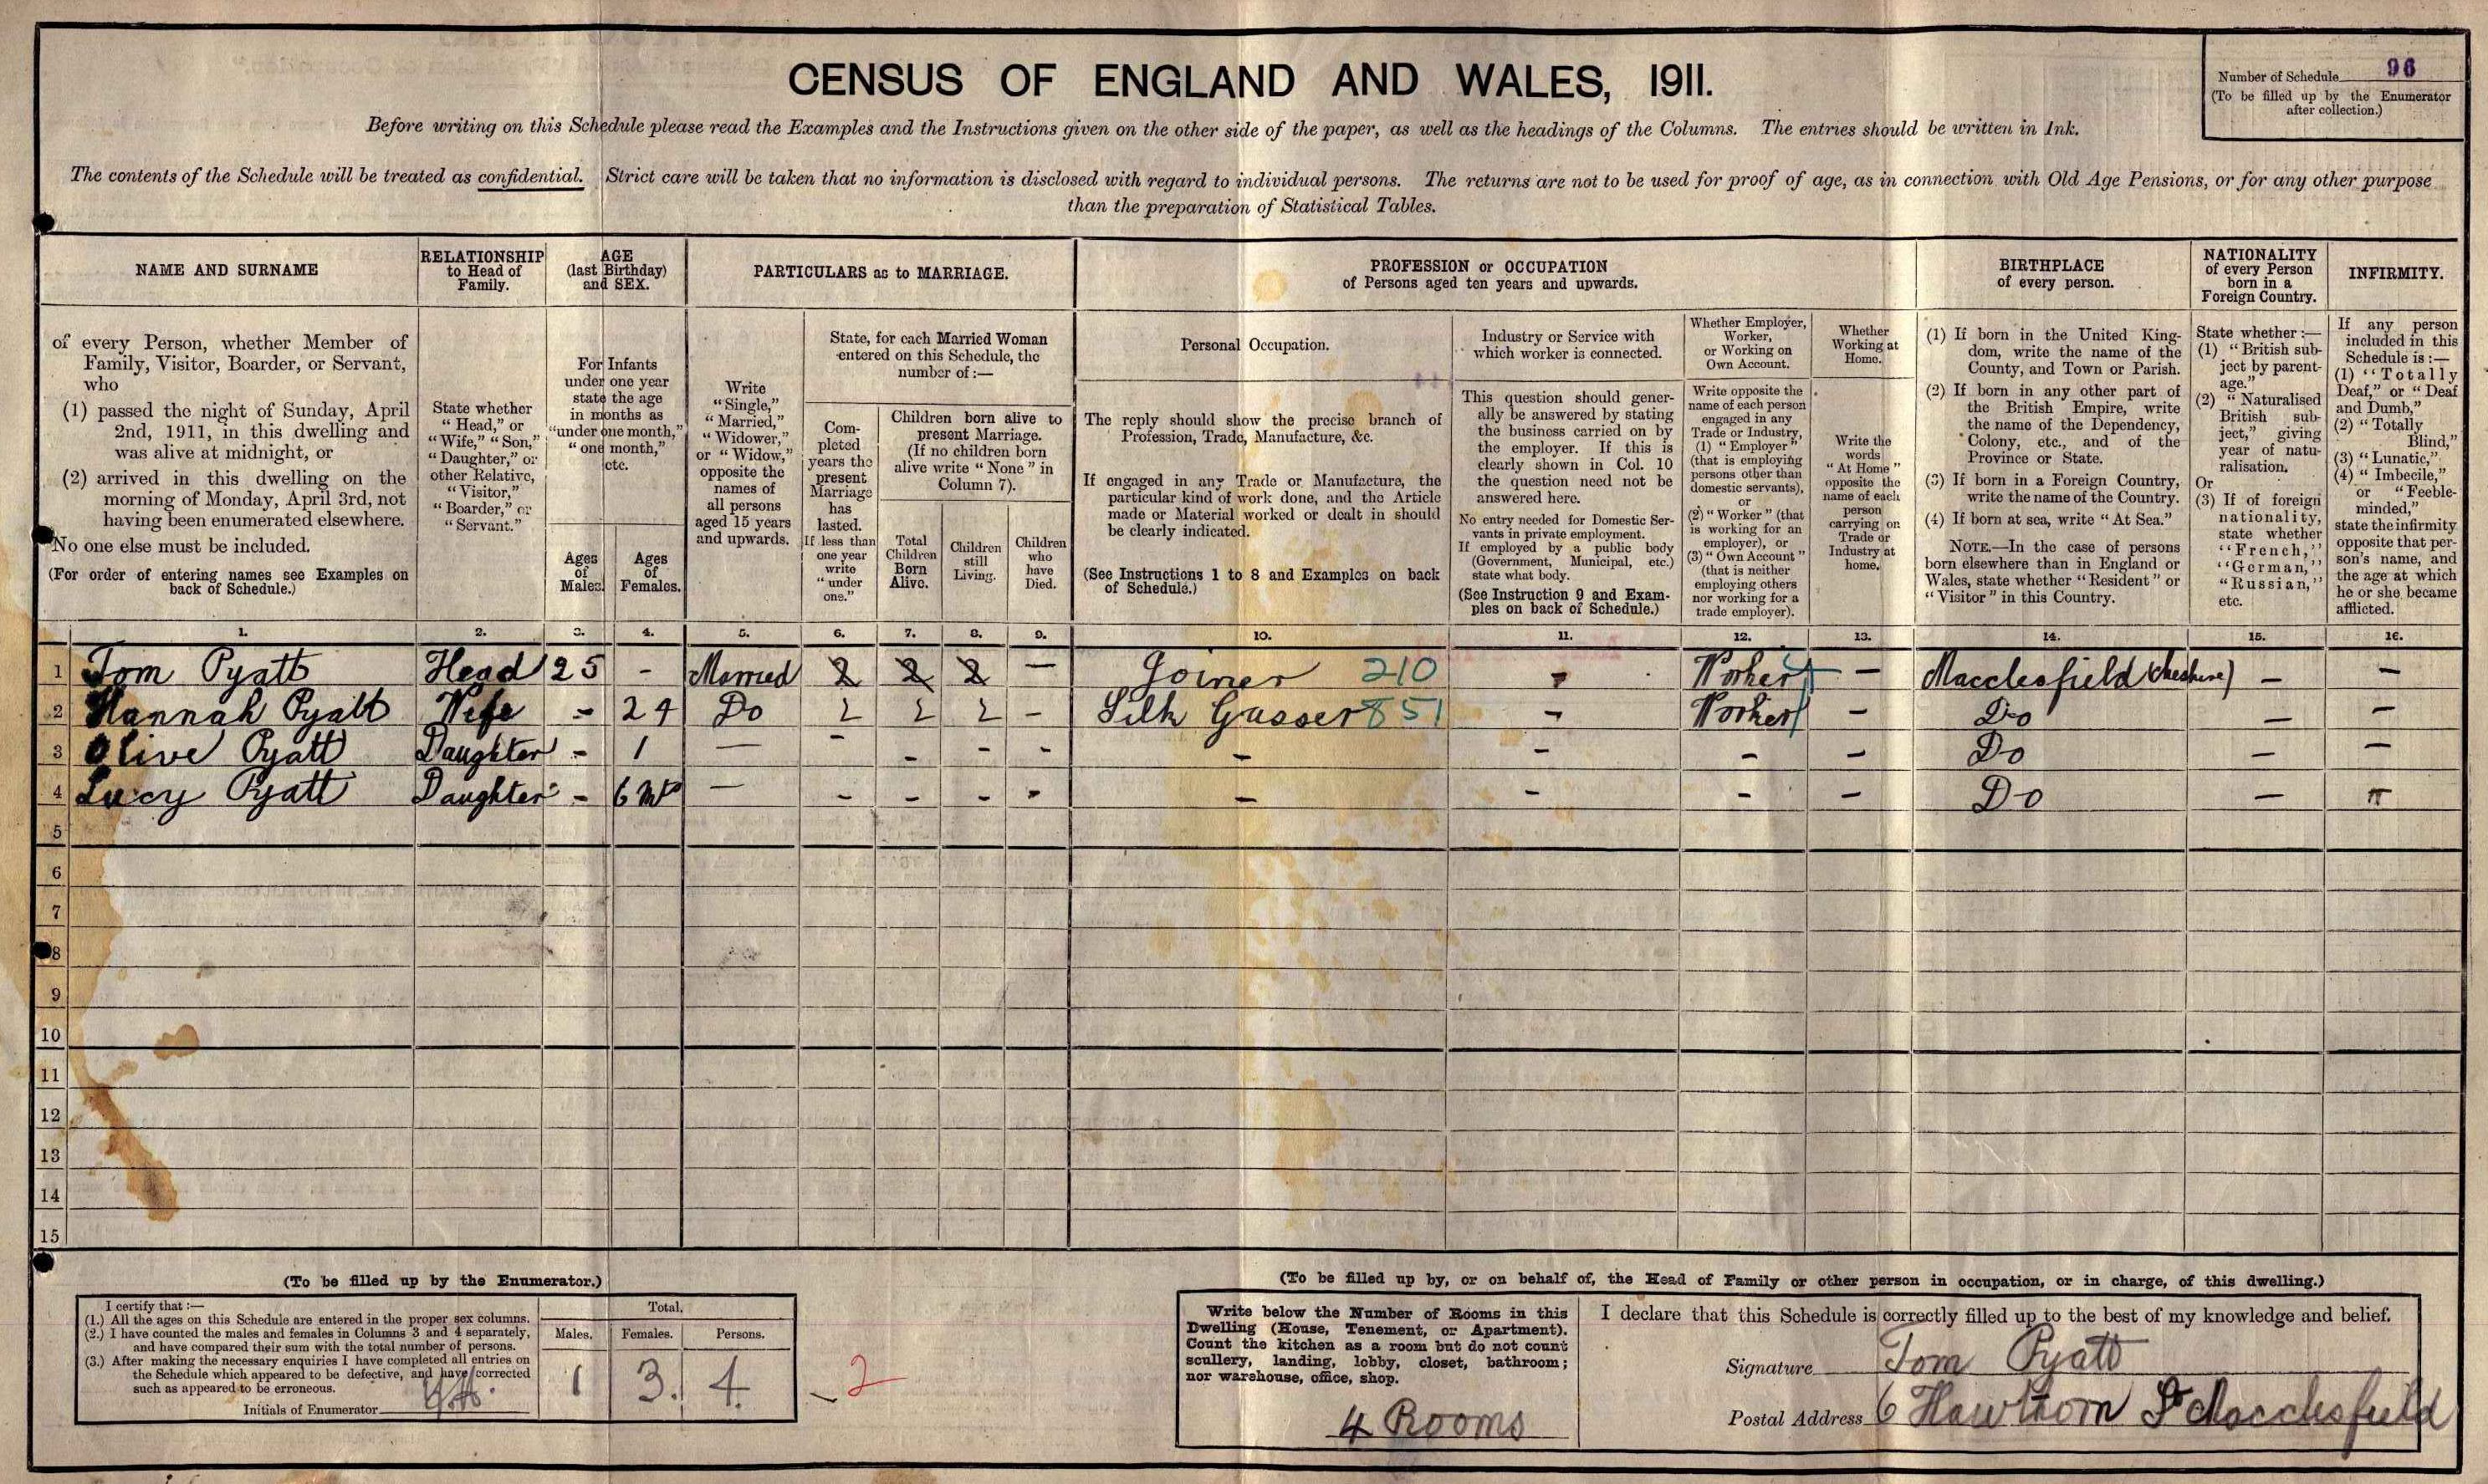 CENSUS OF ENGLAND AND WALES, 1911.
Number of Schedule 96
(To be filled up by the Enumerator
after collection.)
Before writing on this Schedule please read the Examples and the Instructions given on the other side of the paper, as well as the headings of the Columns. The entries should be written in Ink.
The contents of the Schedule will be treated as confidential. Strict care will be taken that no information is disclosed with regard to individual persons. The returns are not to be used for proof of age, as in connection with Old Age Pensions, or for any other purpose
than the preparation of Statistical Tables.
NAME AND SURNAME
of every Person, whether Member of
Family, Visitor, Boarder, or Servant,
who
(1) passed the night of Sunday, April
2nd, 1911, in this dwelling and
was alive at midnight, or
(2) arrived in this dwelling on the
morning of Monday, April 3rd, not
having been enumerated elsewhere.
No one else must be included.
(For order of entering names see Examples on
back of Schedule.)
RELATIONSHIP
to Head of
Family.
State whether
"Head," or
"Wife," "Son,"
"Daughter," or
other Relative,
"Visitor,"
"Boarder," or
"Servant."
AGE
(last Birthday)
and SEX.
For Infants
under one year
state the age
in months as
"under one month,"
"one month,"
etc.
Ages
of
Males.
Ages
of
Females.
PARTICULARS as to MARRIAGE.
Write
"Single,"
"Married,"
"Widower,"
or "Widow,"
opposite the
names of
all persons
aged 15 years
and upwards.
State, for each Married Woman
entered on this Schedule, the
number of:—
Com-
pleted
years the
present
Marriage
has
lasted.
If less than
one year
write
"under
one."
Children born alive to
present Marriage.
(If no children born
alive write "None" in
Column 7).
Total
Children
Born
Alive.
Children
still
Living.
Children
who
have
Died.
PROFESSION or OCCUPATION
of Persons aged ten years and upwards.
Personal Occupation.
The reply should show the precise branch of
Profession, Trade, Manufacture, &c.
If engaged in any Trade or Manufacture, the
particular kind of work done, and the Article
made or Material worked or dealt in should
be clearly indicated.
(See Instructions 1 to 8 and Examples on back
of Schedule.)
Industry or Service with
which worker is connected.
This question should gener-
ally be answered by stating
the business carried on by
the employer. If this is
clearly shown in Col. 10
the question need not be
answered here.
No entry needed for Domestic Ser-
vants in private employment.
If employed by a public body
(Government, Municipal, etc.)
state what body.
(See Instruction 9 and Exam-
ples on back of Schedule.)
Whether Employer,
Worker,
or Working on
Own Account.
Write opposite the
name of each person
engaged in any
Trade or Industry,
(1) "Employer"
(that is employing
persons other than
domestic servants),
or
(2) "Worker" (that
is working for an
employer), or
(3) "Own Account"
(that is neither
employing others
nor working for a
trade employer).
Whether
Working at
Home.
Write the
words
"At Home"
opposite the
name of each
person
carrying on
Trade or
Industry at
home.
BIRTHPLACE
of every person.
(1) If born in the United King-
dom, write the name of the
County, and Town or Parish.
(2) If born in any other part of
the British Empire, write
the name of the Dependency,
Colony, etc., and of the
Province or State.
(3) If born in a Foreign Country,
write the name of the Country.
(4) If born at sea, write "At Sea."
NOTE.—In the case of persons
born elsewhere than in England or
Wales, state whether "Resident" or
"Visitor" in this Country.
NATIONALITY
of every Person
born in a
Foreign Country.
State whether:—
(1) "British sub-
ject by parent-
age."
(2) "Naturalised
British sub-
ject," giving
year of natu-
ralisation.
Or
(3) If of foreign
nationality,
state whether
"French,"
"German,"
"Russian,"
etc.
INFIRMITY.
If any person
included in this
Schedule is:—
(1) "Totally
Deaf," or "Deaf
and Dumb,"
(2) "Totally
Blind,"
(3) "Lunatic,"
(4) "Imbecile,"
or "Feeble-
minded,"
state the infirmity
opposite that per-
son's name, and
the age at which
he or she became
afflicted.
1. 2. 3. 4. 5. 6. 7. 8. 9. 10. 11. 12. 13. 14. 15. 16.
1 Tom Pyatt Head 25 - Married 2 2 2 — Joiner 210 - Worker — Macclesfield (Cheshire) — —
2 Hannah Pyatt Wife - 24 Do 2 2 2 - Silk Gasser 851 - Worker - Do — —
3 Olive Pyatt Daughter - 1 — - - - - - - - - Do — —
4 Lucy Pyatt Daughter - 6 Mts — - - - - - - - - Do —
5
6
7
8
9
10
11
12
13
14
15
(To be filled up by the Enumerator.)
I certify that:—
(1.) All the ages on this Schedule are entered in the proper sex columns.
(2.) I have counted the males and females in Columns 3 and 4 separately,
and have compared their sum with the total number of persons.
(3.) After making the necessary enquiries I have completed all entries on
the Schedule which appeared to be defective, and have corrected
such as appeared to be erroneous.
Initials of Enumerator
Total.
Males. Females. Persons.
1 3. 4.
2
(To be filled up by, or on behalf of, the Head of Family or other person in occupation, or in charge, of this dwelling.)
Write below the Number of Rooms in this
Dwelling (House, Tenement, or Apartment).
Count the kitchen as a room but do not count
scullery, landing, lobby, closet, bathroom;
nor warehouse, office, shop.
4 Rooms
I declare that this Schedule is correctly filled up to the best of my knowledge and belief.
Signature Tom Pyatt
Postal Address 6 Hawthorn St Macclesfield